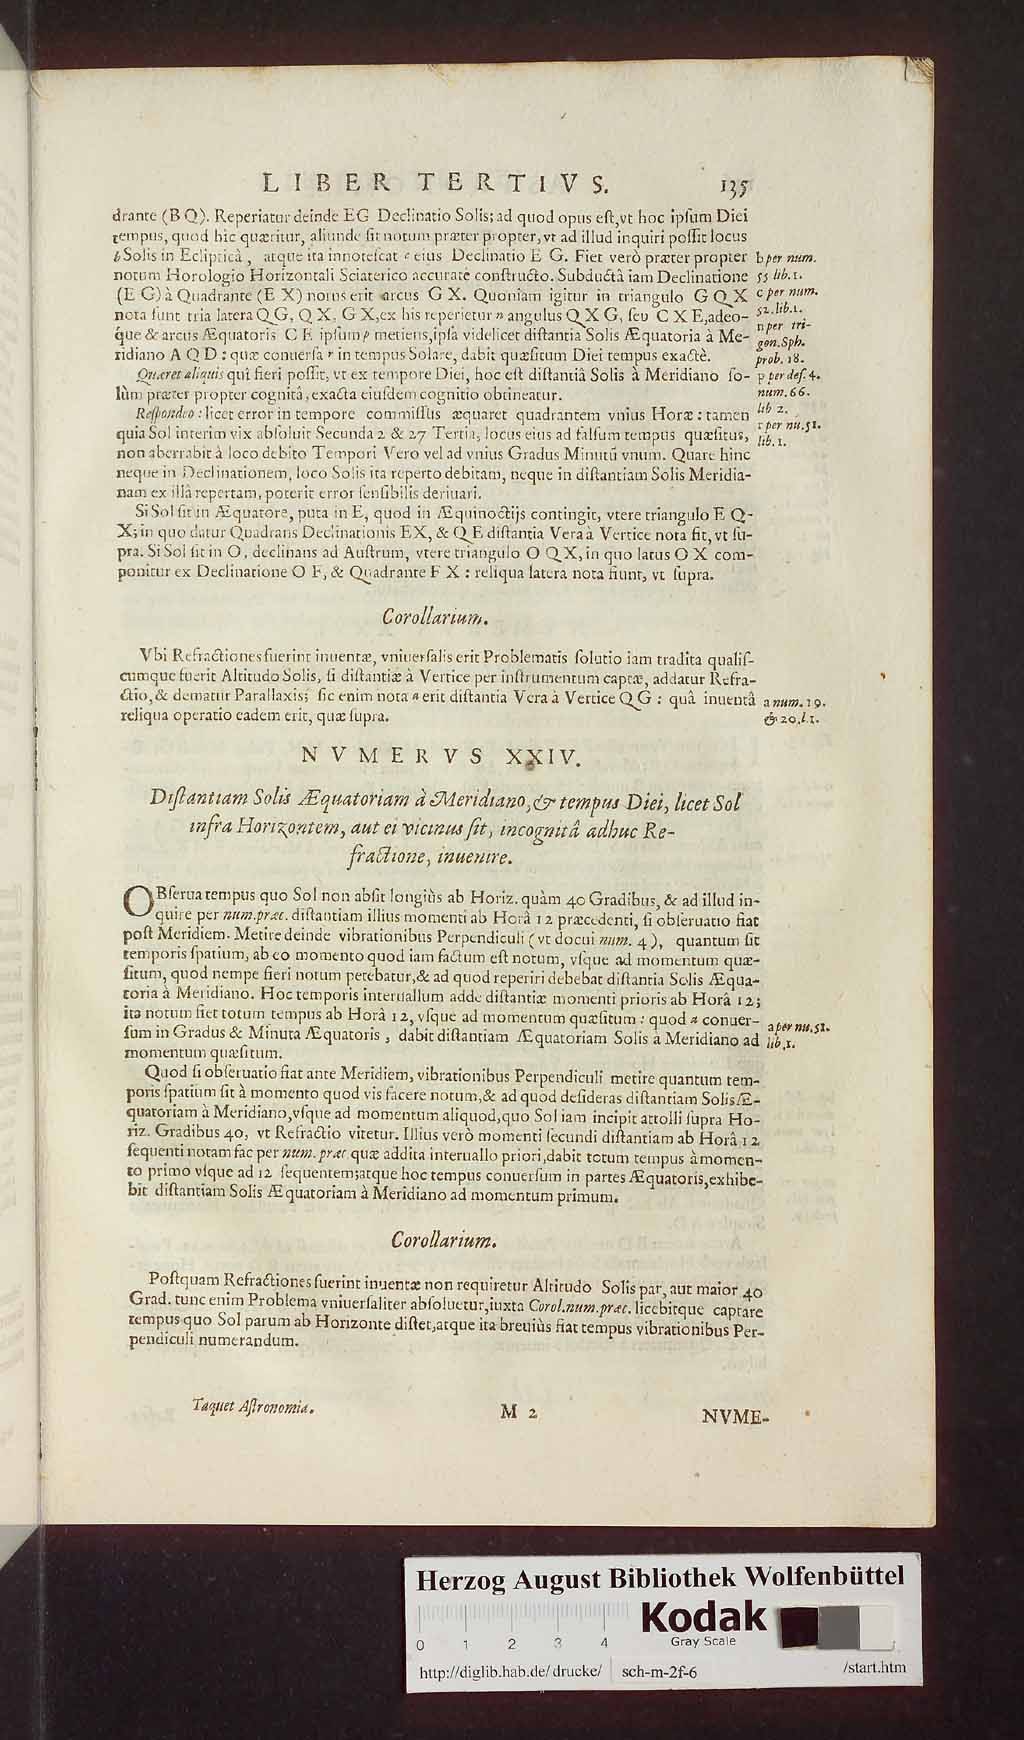 LIBER TERTIVS. 135
drante (B Q). Reperiatur deinde EG Declinatio Solis; ad quod opus eſt, vt hoc ipſum Diei
tempus, quod hic quæritur, aliunde ſit notum præter propter, vt ad illud inquiri poſſit locus
b Solis in Eclipticâ, atque ita innoteſcat c eius Declinatio E G. Fiet verò præter propter
notum Horologio Horizontali Sciaterico accuratè conſtructo. Subductâ iam Declinatione
(E G) à Quadrante (E X) notus erit arcus G X. Quoniam igitur in triangulo G Q X
nota ſunt tria latera Q G, Q X, G X, ex his reperietur n angulus Q X G, ſeu C X E, adeo-
que & arcus Æquatoris C E ipſum p metiens, ipſa videlicet diſtantia Solis Æquatoria à Me-
ridiano A Q D : quæ conuerſa r in tempus Solare, dabit quæſitum Diei tempus exactè.
b per num.
55 lib. 1.
c per num.
52. lib. 1.
n per tri-
gon. Sph.
prob. 18.
p per def. 4.
num. 66.
lib 2.
r per nu. 51.
lib. 1.
Quæret aliquis qui fieri poſſit, vt ex tempore Diei, hoc eſt diſtantiâ Solis à Meridiano ſo-
lùm præter propter cognitâ, exacta eiuſdem cognitio obtineatur.
Reſpondeo : licet error in tempore commiſſus æquaret quadrantem vnius Horæ : tamen
quia Sol interim vix abſoluit Secunda 2 & 27 Tertia, locus eius ad falſum tempus quæſitus,
non aberrabit à loco debito Tempori Vero vel ad vnius Gradus Minutū vnum. Quare hinc
neque in Declinationem, loco Solis ita reperto debitam, neque in diſtantiam Solis Meridia-
nam ex illâ repertam, poterit error ſenſibilis deriuari.
Si Sol ſit in Æquatore, puta in E, quod in Æquinoctijs contingit, vtere triangulo E Q-
X; in quo datur Quadrans Declinationis EX, & Q E diſtantia Vera à Vertice nota fit, vt ſu-
pra. Si Sol ſit in O, declinans ad Auſtrum, vtere triangulo O Q X, in quo latus O X com-
ponitur ex Declinatione O F, & Quadrante F X : reliqua latera nota fiunt, vt ſupra.
Corollarium.
Vbi Refractiones fuerint inuentæ, vniuerſalis erit Problematis ſolutio iam tradita qualiſ-
cumque fuerit Altitudo Solis, ſi diſtantiæ à Vertice per inſtrumentum captæ, addatur Refra-
ctio, & dematur Parallaxis; ſic enim nota a erit diſtantia Vera à Vertice Q G : quâ inuentâ
reliqua operatio eadem erit, quæ ſupra.
a num. 19.
& 20. l. 1.
NVMERVS XXIV.
Diſtantiam Solis Æquatoriam à Meridiano, & tempus Diei, licet Sol
infra Horizontem, aut ei vicinus ſit, incognitâ adhuc Re-
fractione, inuenire.
OBſerua tempus quo Sol non abſit longiùs ab Horiz. quàm 40 Gradibus, & ad illud in-
quire per num. præc. diſtantiam illius momenti ab Horâ 12 præcedenti, ſi obſeruatio fiat
poſt Meridiem. Metire deinde vibrationibus Perpendiculi ( vt docui num. 4 ), quantum ſit
temporis ſpatium, ab eo momento quod iam factum eſt notum, vſque ad momentum quæ-
ſitum, quod nempe fieri notum petebatur, & ad quod reperiri debebat diſtantia Solis Æqua-
toria à Meridiano. Hoc temporis interuallum adde diſtantiæ momenti prioris ab Horâ 12;
ita notum fiet totum tempus ab Horâ 12, vſque ad momentum quæſitum : quod a conuer-
ſum in Gradus & Minuta Æquatoris, dabit diſtantiam Æquatoriam Solis à Meridiano ad
momentum quæſitum.
a per nu. 51.
lib. 1.
Quod ſi obſeruatio fiat ante Meridiem, vibrationibus Perpendiculi metire quantum tem-
poris ſpatium ſit à momento quod vis facere notum, & ad quod deſideras diſtantiam Solis Æ-
quatoriam à Meridiano, vſque ad momentum aliquod, quo Sol iam incipit attolli ſupra Ho-
riz. Gradibus 40, vt Refractio vitetur. Illius verò momenti ſecundi diſtantiam ab Horâ 12
ſequenti notam fac per num. præc quæ addita interuallo priori, dabit totum tempus à momen-
to primo vſque ad 12 ſequentem; atque hoc tempus conuerſum in partes Æquatoris, exhibe-
bit diſtantiam Solis Æquatoriam à Meridiano ad momentum primum.
Corollarium.
Poſtquam Refractiones fuerint inuentæ non requiretur Altitudo Solis par, aut maior 40
Grad. tunc enim Problema vniuerſaliter abſoluetur, iuxta Corol. num. præc. licebitque captare
tempus quo Sol parum ab Horizonte diſtet, atque ita breuiùs fiat tempus vibrationibus Per-
pendiculi numerandum.
Taquet Aſtronomia. M 2 NVME-
Herzog August Bibliothek Wolfenbüttel
Kodak
Gray Scale
0 1 2 3 4
http://diglib.hab.de/drucke/ sch-m-2f-6 /start.htm